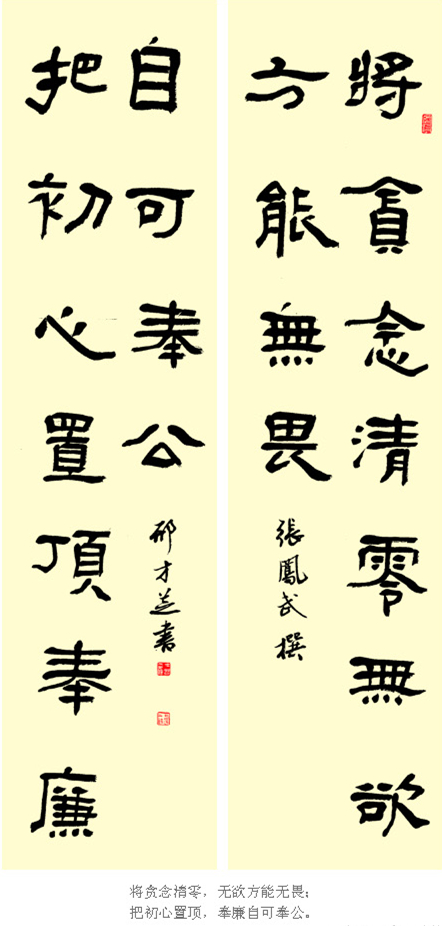 將貪念清零無欲
方能無畏
張鳳武撰
把初心置頂奉廉
自可奉公
将贪念清零，无欲方能无畏；
把初心置顶，奉廉自可奉公。